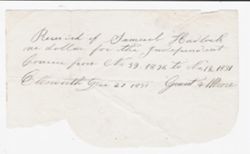 Received of Samuel Hadlock
one dollar for the Independent
Courier from No 39. 1836 to No 1831
Ellsworth 21 1831 Grant & Moore